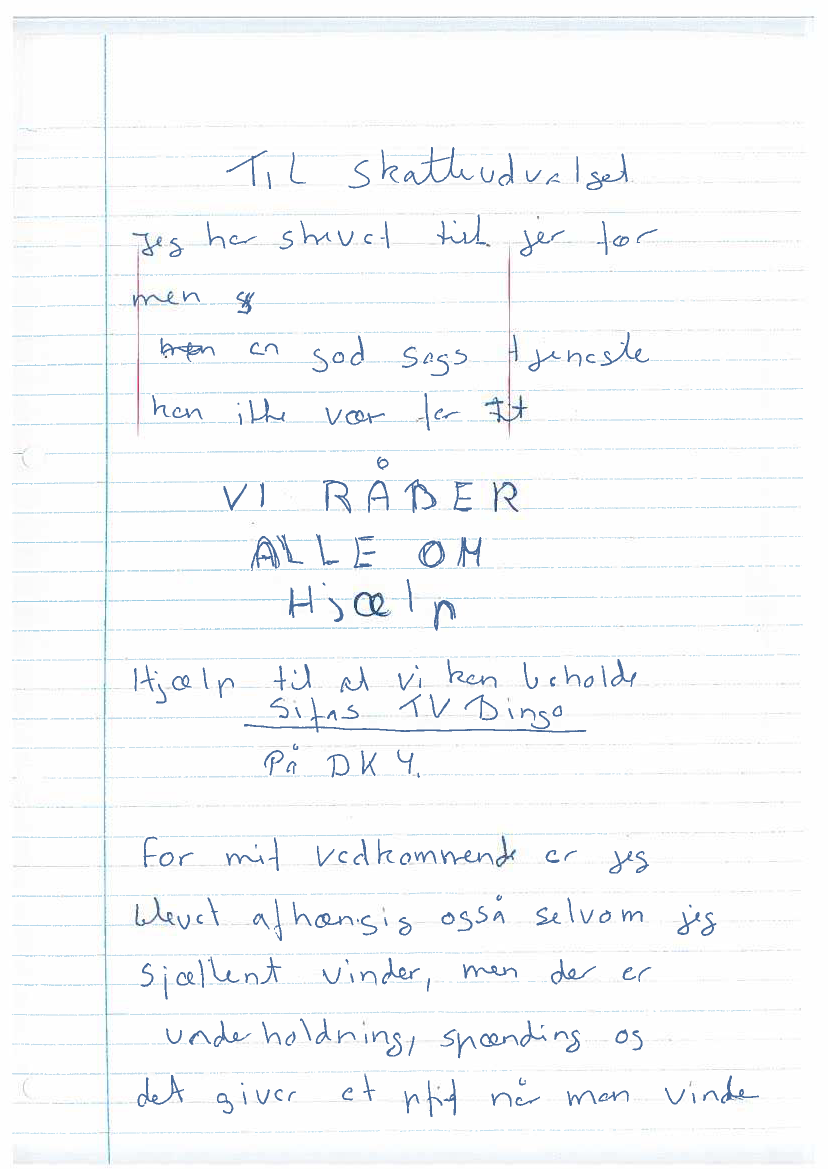 TiL skatteudvalget
Jeg har skrevet till jer før
men
men en god sags tjeneste
kan ikke vær for
VI RÅBER
ALLE OM
Hjælp
Hjælp til at vi kan beholde
Sifas TV Bingo
På DK 4.
For mit vedkommende er jeg
blevet afhængig også selvom jeg
sjællent vinder, men der er
underholdning, spænding og
det giver et når man vinde